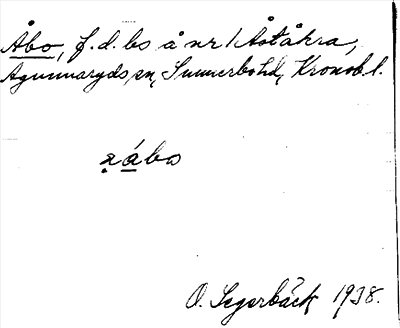 Åbo, f.d. bs å nr 1 Åståkra,
Agunnaryds sn, Sunnerbo hd, Kronob. l.
a ábo
O. Segerbäck 1938.